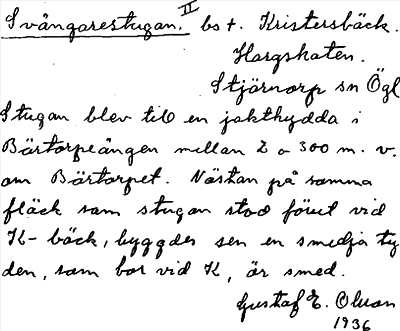 Svångarestugan. II bst. Kristersbäck.
Hargskaten.
Stjärnorp sn Ögl
Stugan blev till en jakthydda i
Bärtorpeängen mellan 2 o 300 m. v.
om Bärtorpet. Nästan på samma
fläck som stugan stod förut vid
K-bäck, byggdes sen en smedja ty
den, som bor vid K, är smed.
Gustaf E. Olsson
1936